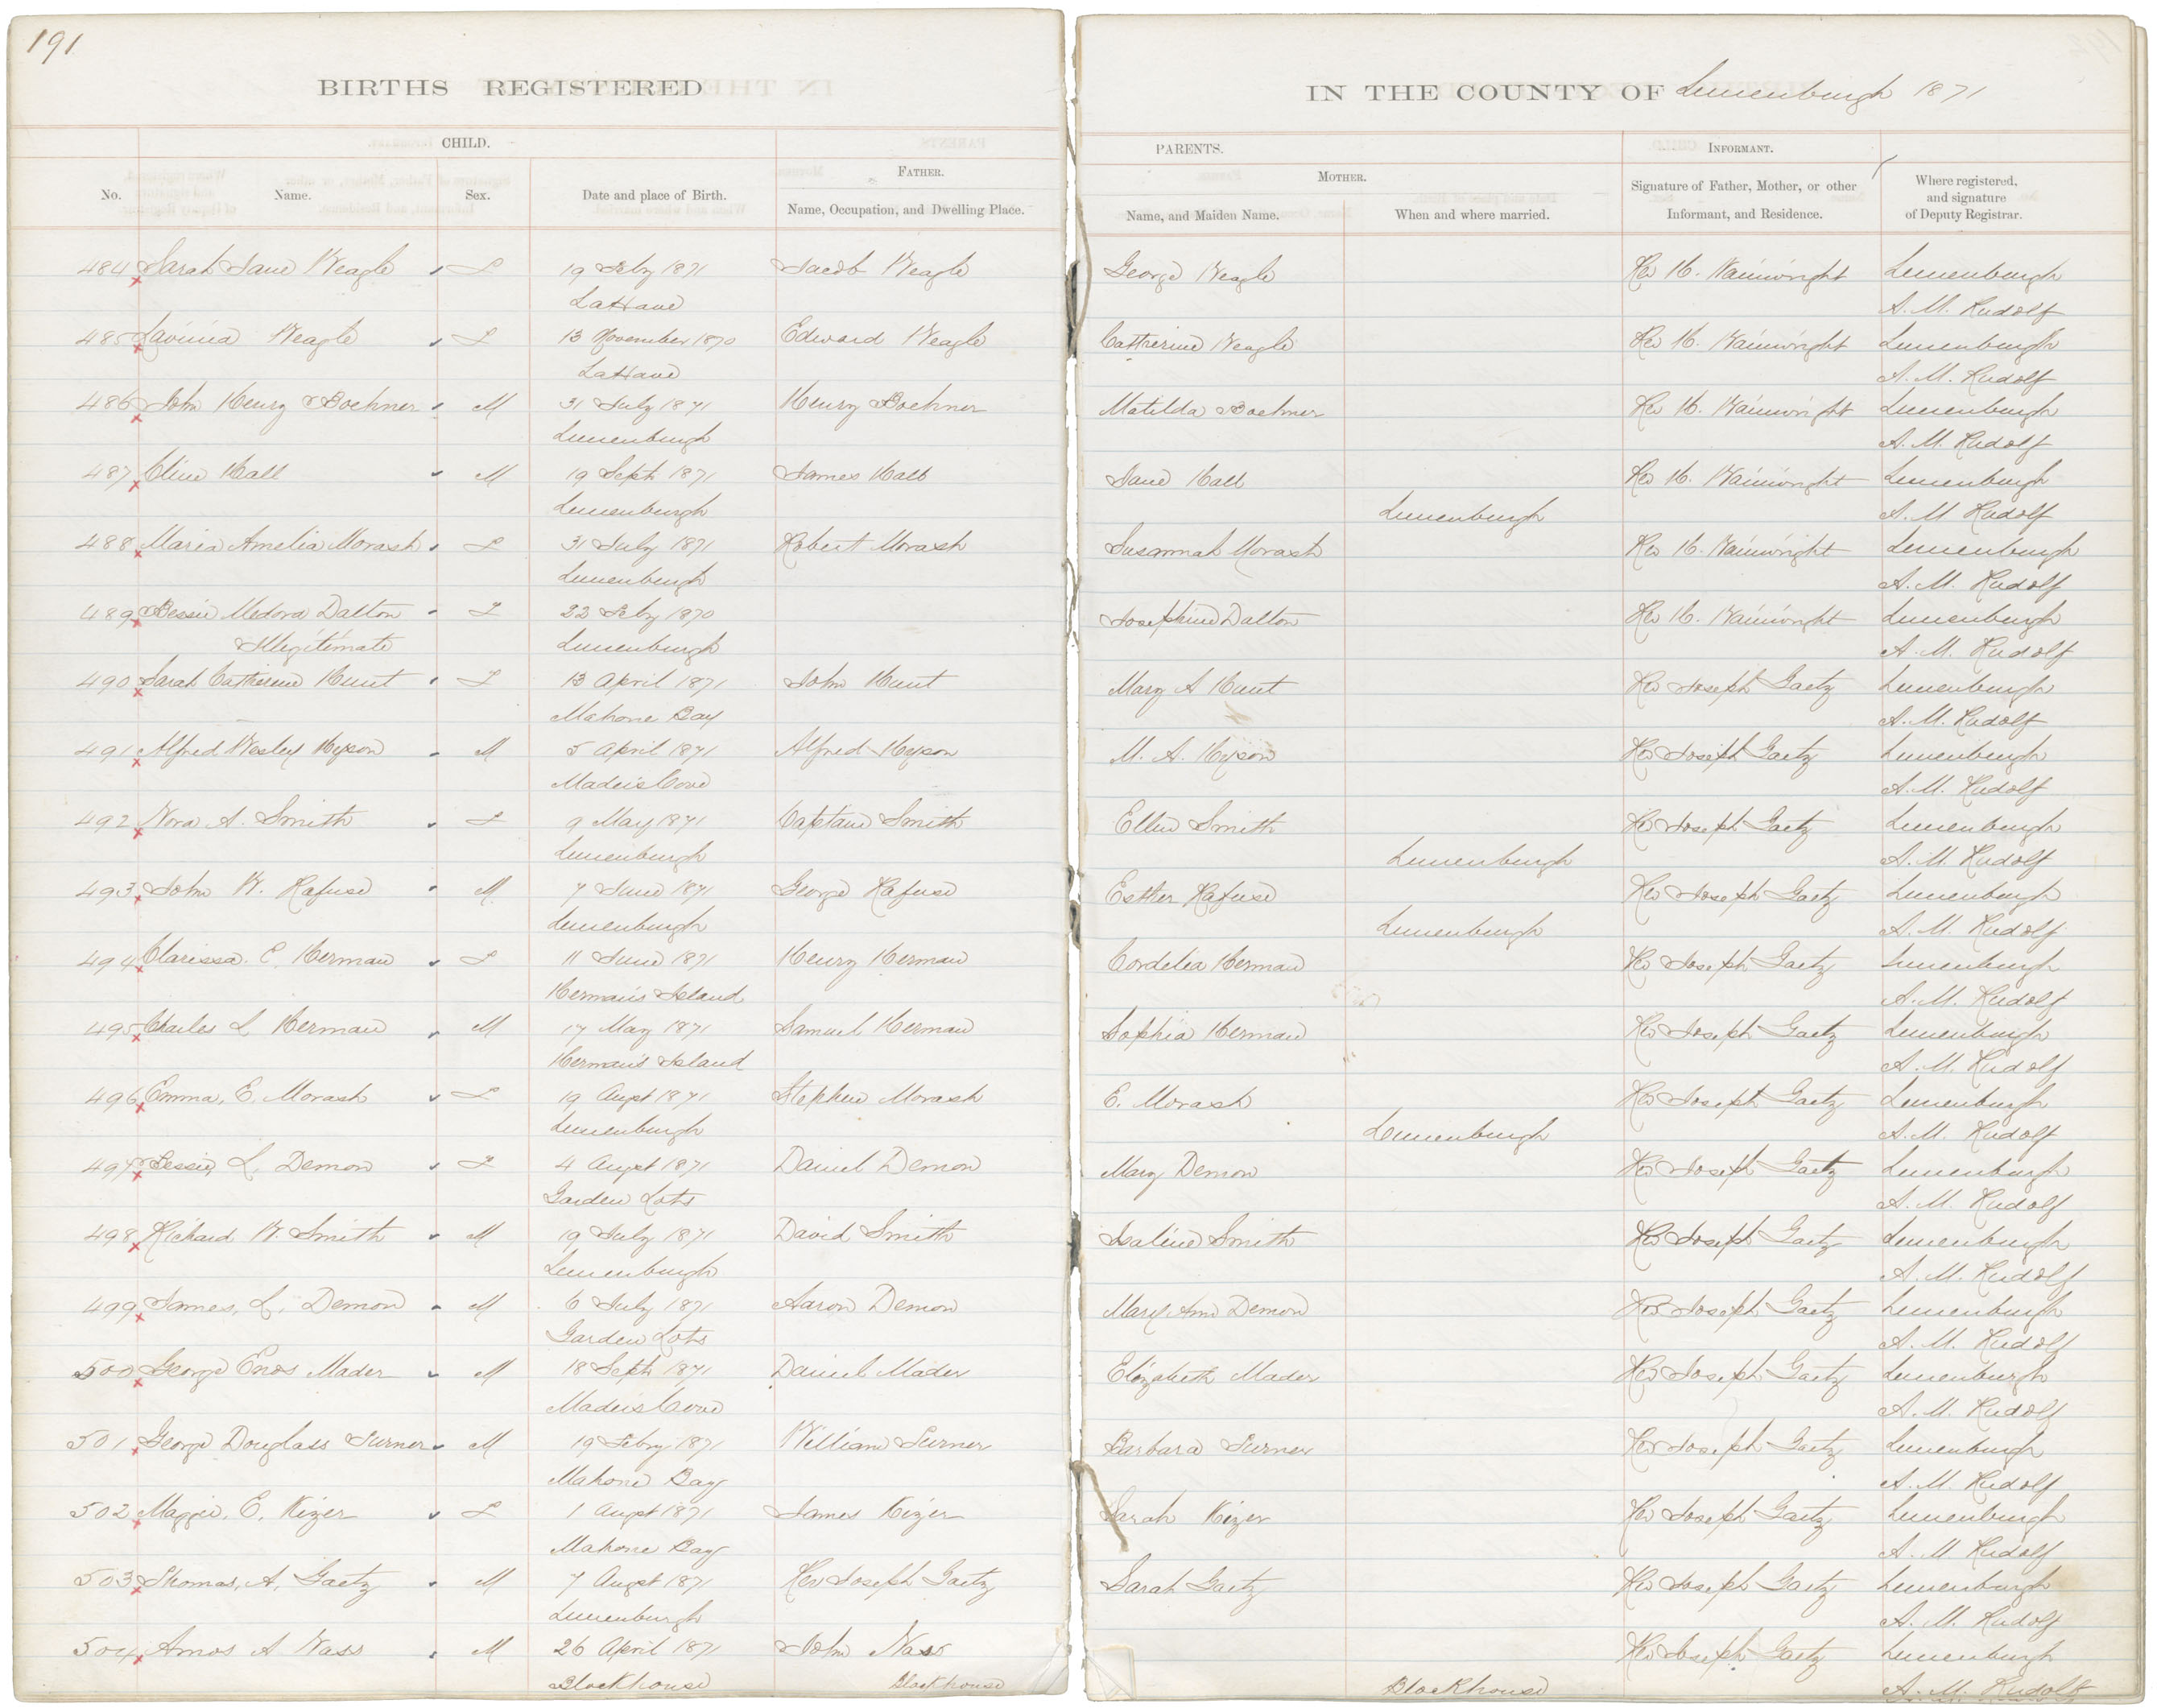 191
BIRTHS REGISTERED
IN THE COUNTY OF Lunenburgh 1871
CHILD.
PARENTS.
INFORMANT.
No.
Name.
Sex.
Date and place of Birth.
FATHER.
Name, Occupation, and Dwelling Place.
MOTHER.
Name, and Maiden Name.
When and where married.
Signature of Father, Mother, or other
Informant, and Residence.
Where registered,
and signature
of Deputy Registrar.
484 Sarah Jane Weagle F 19 Feby 1871 Jacob Weagle George Weagle Rev H. Wainwright Lunenburgh
LaHave A. M. Rudolf
485 Lavinia Weagle F 13 November 1870 Edward Weagle Catherine Weagle Rev H. Wainwright Lunenburgh
LaHave A. M. Rudolf
486 John Henry Boehner M 31 July 1871 Henry Boehner Matilda Boehner Rev H. Wainwright Lunenburgh
Lunenburgh A. M. Rudolf
487 Hall M 19 Septr 1871 James Hall Jane Hall Rev H. Wainwright Lunenburgh
Lunenburgh Lunenburgh A. M Rudolf
488 Maria Amelia Morash F 31 July 1871 Robert Morash Susannah Morash Rev H. Wainwright Lunenburgh
Lunenburgh A. M. Rudolf
489 Bessie Medora Dalton F 22 Feby 1870 Josephine Dalton Rev H. Wainwright Lunenburgh
Illegitimate Lunenburgh A. M. Rudolf
490 Sarah Catherine Hunt F 13 April 1871 John Hunt Mary A Hunt Rev Joseph Gaetz Lunenburgh
Mahone Bay A. M. Rudolf
491 Alfred Wesley Hyson M 5 April 1871 Alfred Hyson M. A. Hyson Rev Joseph Gaetz Lunenburgh
Maders Cove A. M. Rudolf
492 Nora A. Smith F 9 May 1871 Captain Smith Ellen Smith Rev Joseph Gaetz Lunenburgh
Lunenburgh Lunenburgh A. M. Rudolf
493 John W. Rafuse M. 7 June 1871 George Rafuse Esther Rafuse Rev Joseph Gaetz Lunenburgh
Lunenburgh Lunenburgh A. M. Rudolf
494 Clarissa. E. Herman F 11 June 1871 Henry Herman Cordelia Herman Rev Joseph Gaetz Lunenburgh
Herman's Island A. M. Rudolf
495 Charles L Herman M 17 May 1871 Samuel Herman Sophia Herman Rev Joseph Gaetz Lunenburgh
Herman's Island A. M. Rudolf
496 Emma, E. Morash F 19 Augst 1871 Stephen Morash E. Morash Rev Joseph Gaetz Lunenburgh
Lunenburgh Lunenburgh A. M. Rudolf
497 L. Demon F 4 Augst 1871 Daniel Demon Mary Demon Rev Joseph Gaetz Lunenburgh
Garden Lots A. M. Rudolf
498 Richard W. Smith M 19 July 1871 David Smith Smith Rev Joseph Gaetz Lunenburgh
Lunenburgh A. M. Rudolf
499 James, L. Demon M 6 July 1871 Aaron Demon Mary Ann Demon Rev Joseph Gaetz Lunenburgh
Garden Lots A. M. Rudolf
500 George Enos Mader M 18 Septr 1871 Daniel Mader Elizabeth Mader Rev Joseph Gaetz Lunenburgh
Maders Cove A. M. Rudolf
501 George Douglass Turner M 19 Febry 1871 William Turner Barbara Turner Rev Joseph Gaetz Lunenburgh
Mahone Bay A. M. Rudolf
502 Maggie, E. Kizer F 1 Augst 1871 James Kizer Sarah Kizer Rev Joseph Gaetz Lunenburgh
Mahone Bay A. M. Rudolf
503 Thomas, A. Gaetz M 7 Augst 1871 Rev Joseph Gaetz Sarah Gaetz Rev Joseph Gaetz Lunenburgh
Lunenburgh A. M. Rudolf
504 Amos A Nass M 26 April 1871 John Nass Rev Joseph Gaetz Lunenburgh
Blockhouse Blockhouse Blockhouse A. M. Rudolf